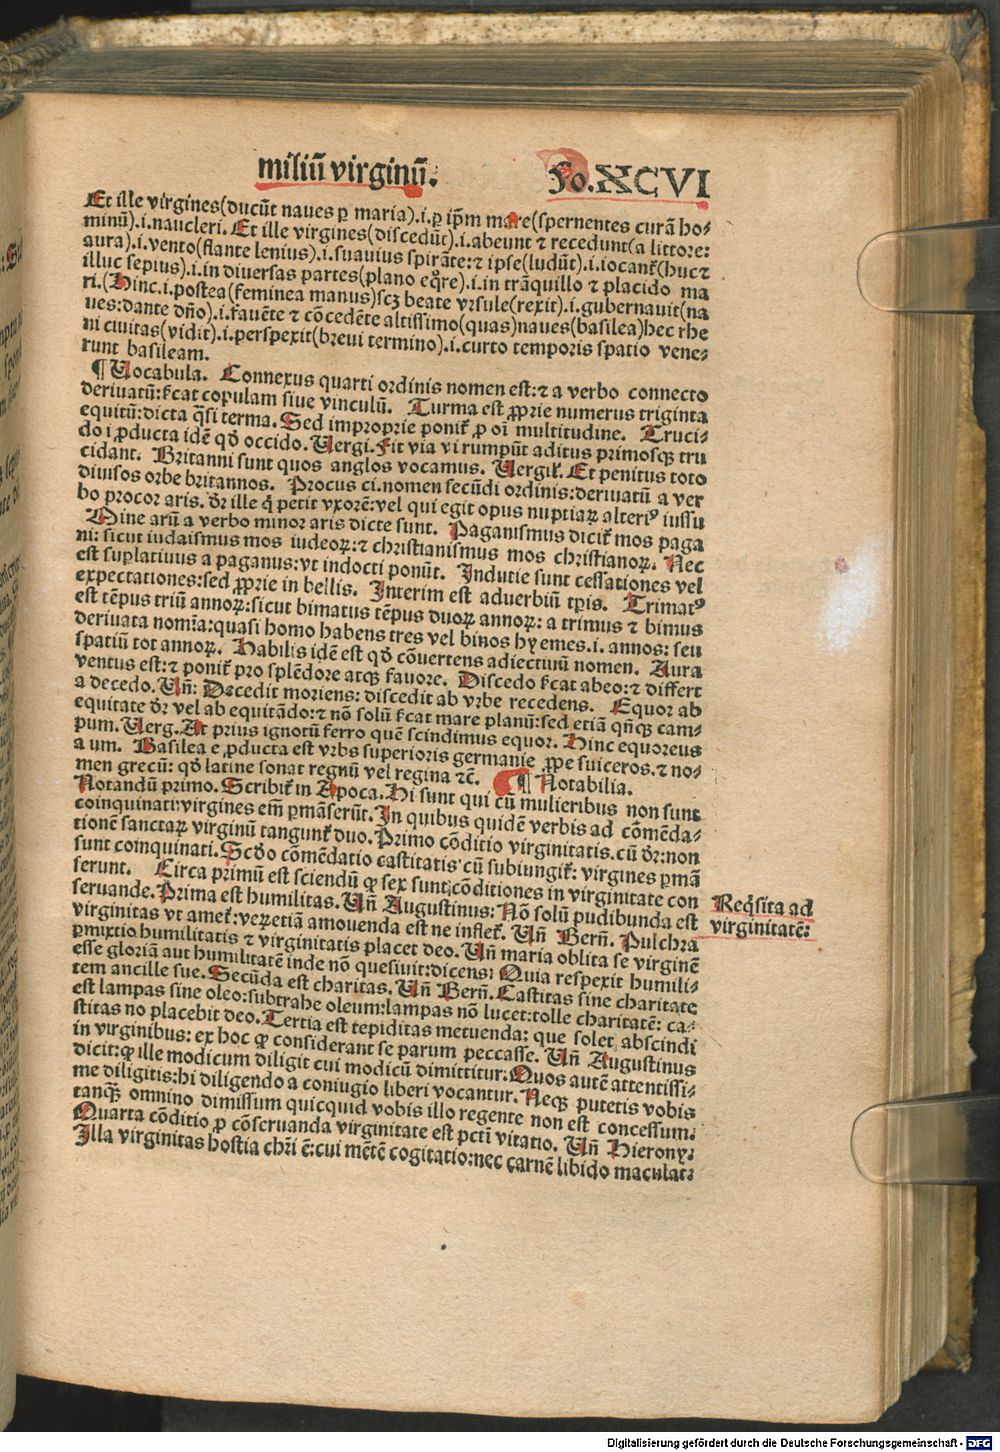 miliū virginū.
Fo. XCVI
Et ille virgines(ducūt naues ꝑ maria).i.ꝑ ip̄m mare(spernentes curā ho⸗
minū).i.naucleri. Et ille virgines(discedūt).i.abeunt ⁊ recedunt(a littore:
aura).i.vento(flante lenius).i.suauius spirāte:⁊ ipse(ludūt).i.iocant᷑(huc⁊
illuc sepius).i.in diuersas partes(plano eq̄re).i.in trāquillo ⁊ placido ma
ri.(Hinc.i.postea(feminea manus)scꝫ beate vrsule(rexit).i.gubernauit(na
ues:dante dn̄o).i.fauēte ⁊ cōcedēte altissimo(quas)naues(basilea)hec rhe
ni ciuitas(vidit).i.perspexit(breui termino).i.curto temporis spatio vene⸗
runt basileam.
¶ Uocabula. Connexus quarti ordinis nomen est:⁊ a verbo connecto
deriuatū:ſ᷑cat copulam siue vinculū. Turma est ꝓprie numerus triginta
equitū:dicta q̄si terma. Sed improprie ponit᷑ ꝓ oī multitudine. Truci⸗
do i ꝓducta idē qd̄ occido. Uergi. Fit via vi rumpūt aditus primosqꝫ tru
cidant. Britanni sunt quos anglos vocamus. Uergil᷑. Et penitus toto
diuisos orbe britannos. Procus ci.nomen secūdi ordinis:deriuatū a ver
bo procor aris. dr̄ ille q̄ petit vxorē:vel qui egit opus nuptiaꝝ alteriꝰ iussu
Mine arū a verbo minor aris dicte sunt. Paganismus dicit᷑ mos paga
ni: sicut iudaismus mos iudeoꝝ:⁊ christianismus mos christianoꝝ. Nec
est suplatiuus a paganus:vt indocti ponūt. Indutie sunt cessationes vel
expectationes:sed ꝓprie in bellis. Interim est aduerbiū tp̄is. Trimatꝰ
est tēpus triū annoꝝ:sicut bimatus tēpus duoꝝ annoꝝ: a trimus ⁊ bimus
deriuata nomīa:quasi homo habens tres vel binos hyemes.i.annos: seu
spatiū tot annoꝝ. Habilis idē est qd̄ cōuertens adiectiuū nomen. Aura
ventus est:⁊ ponit᷑ pro splēdore atqꝫ fauore. Discedo ſ᷑cat abeo:⁊ differt
a decedo. Un̄: Decedit moriens: discedit ab vrbe recedens. Equor ab
equitate dr̄ vel ab equitādo:⁊ nō solū ſ᷑cat mare planū:sed etiā qn̄qꝫ cam⸗
pum. Uerg. At prius ignotū ferro quē scindimus equor. Hinc equoreus
a um. Basilea e ꝓducta est vrbs superioris germanie ꝓpe suiceros.⁊ no⸗
men grecū: qd̄ latine sonat regnū vel regina ⁊c̄. ¶ Notabilia.
Notandū primo. Scribit᷑ in Apoca. Hi sunt qui cū mulieribus non sunt
coinquinati:virgines em̄ ꝑmāserūt. In quibus quidē verbis ad cōmēda⸗
tionē sanctaꝝ virginū tangunt᷑ duo. Primo cōditio virginitatis.cū dr̄:non
sunt coinquinati. Scd̄o cōmēdatio castitatis cū subiungit᷑: virgines ꝑmā
serunt. Circa primū est sciendū ꝙ sex sunt cōditiones in virginitate con
seruande. Prima est humilitas. Un̄ Augustinus: Nō solū pudibunda est
virginitas vt amet᷑:veretiā amouenda est ne inflet᷑. Un̄ Bern̄. Pulchra
ꝑmixtio humilitatis ⁊ virginitatis placet deo. Un̄ maria oblita se virginē
esse gloriā aut humilitatē inde nō quesiuit:dicens: Quia respexit humili⸗
tem ancille sue. Secūda est charitas. Un̄ Bern̄. Castitas sine charitate
est lampas sine oleo:subtrahe oleum:lampas nō lucet:tolle charitatē: ca⸗
stitas no placebit deo. Tertia est tepiditas metuenda: que solet abscindi
in virginibus: ex hoc ꝙ considerant se parum peccasse. Un̄ Augustinus
dicit:ꝙ ille modicum diligit cui modicū dimittitur. Quos autē attentissi⸗
me diligitis:hi diligendo a coniugio liberi vocantur. Neqꝫ putetis vobis
tanqꝫ omnino dimissum quicquid vobis illo regente non est concessum.
Quarta cōditio ꝓ cōseruanda virginitate est pctī vitatio. Un̄ Hieronꝝ:
Illa virginitas hostia chr̄i ē:cui mētē cogitatio:nec carnē libido maculat:
Reqͥsita ad
virginitatē:
Digitalisierung gefördert durch die Deutsche Forschungsgemeinschaft - DFG